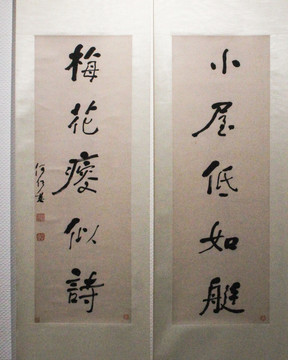 小屋低如艇
梅花瘦似詩